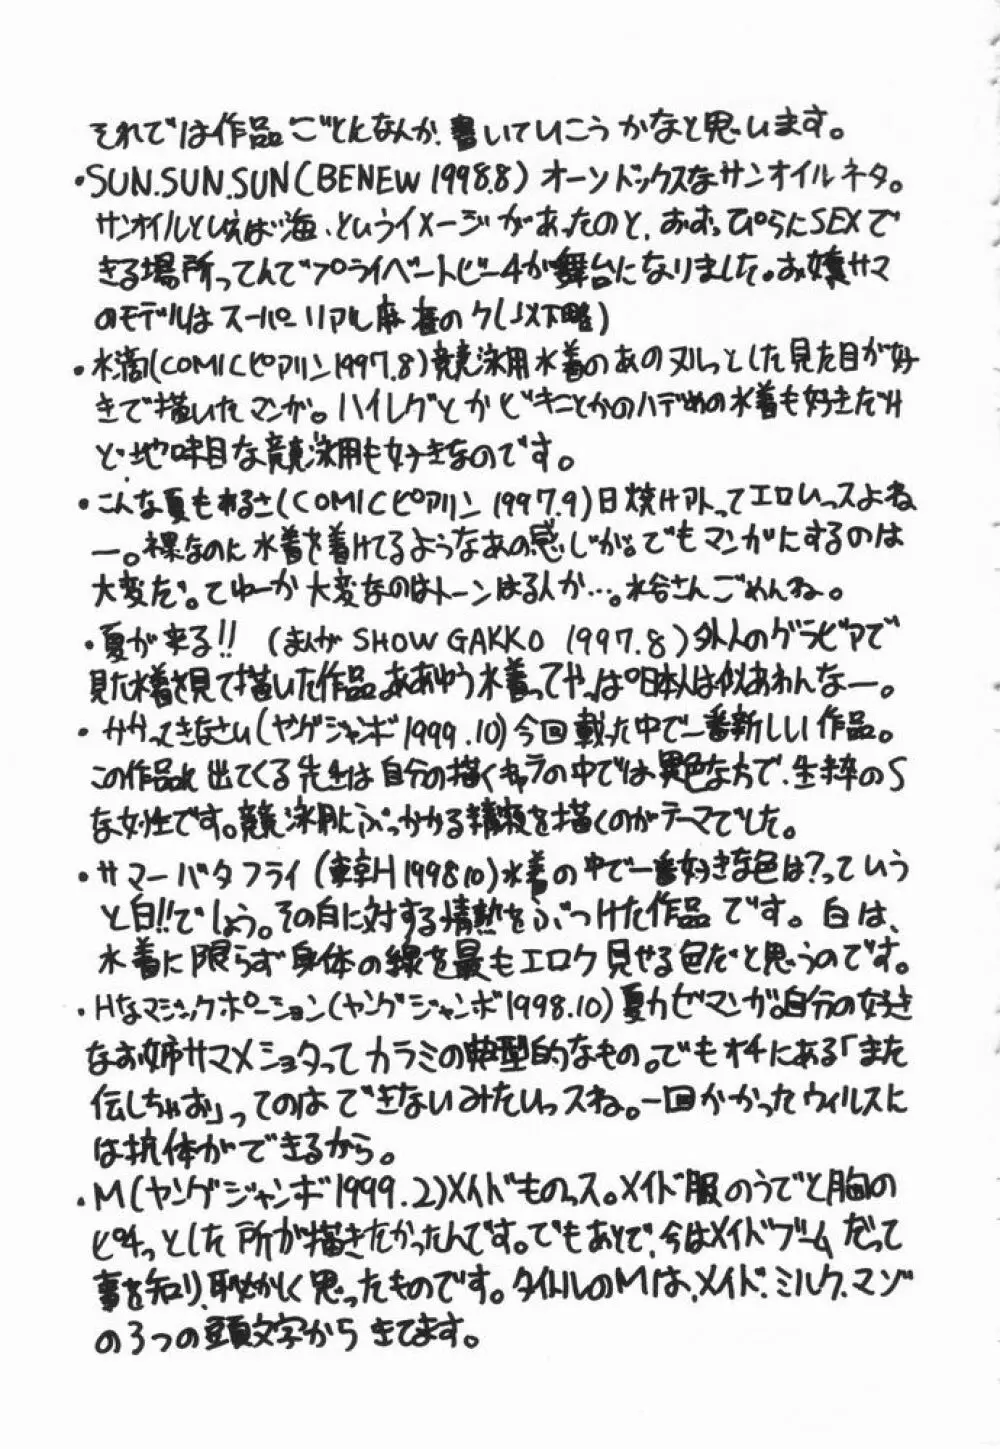 それでは作品ごとになんか、書いていこうかなと思います。
・SUN.SUN.SUN(BENEW 1998.8) オーソドックスなサンオイルネタ。
サンオイルといえば海、というイメージがあったのと、おおっぴらにSEXで
きる場所ってんでプライベートビーチが舞台になりました。お嬢サマ
のモデルはスーパーリアル麻雀のク(以下略)
・水滴(COMICピアリン1997.8)競泳用水着のあのヌルっとした見た目が好
きで描いたマンガ。ハイレグとかビキニとかのハデめの水着も好きだけ
ど、地味目な競泳用も好きなのです。
・こんな夏もわるさ(COMICピアリン 1997.9)日焼けアトってエロいっスよね
ー。裸なのに水着を着けてるようなあの感じが。でもマンガにするのは
大変だ。てゆーか大変なのはトーンはる人か…。水谷さんごめんね。
・夏が来る!! (まんがSHOW GAKKO 1997.8)外人のグラビアで
見た水着を見て描いた作品。ああゆう水着ってやっぱ日本人は似あわんなー。
・かかってきなさい(ヤングジャンボ1999.10)今回載った中で一番新しい作品。
この作品に出てくる先生は自分の描くキャラの中では異色な方で、生粋のS
な女性です。競泳用にぶっかかる精液を描くのがテーマでした。
・サマーバタフライ(東京H1998.10)水着の中で一番好きな色は?っていう
と白!!でしょう。その白に対する情熱をぶつけた作品です。白は、
水着に限らず身体の線を最もエロく見せる色だと思うのです。
・Hなマジックポーション(ヤングジャンボ1998.10)夏カゼマンガ。自分の好き
なお姉サマ×ショタってカラミの典型的なもの。でもオチにある「また
伝しちゃお」ってのはできないみたいっスね。一回かかったウィルスに
は抗体ができるから。
・M(ヤングジャンボ1999.2)メイドものっス。メイド服のうでと胸の
ピチっとした所が描きたかったんです。でもあとで、今はメイドブームだって
事を知り、恥かしく思ったものです。タイトルのMは、メイド、ミルク、マゾ
の3つの頭文字からきてます。